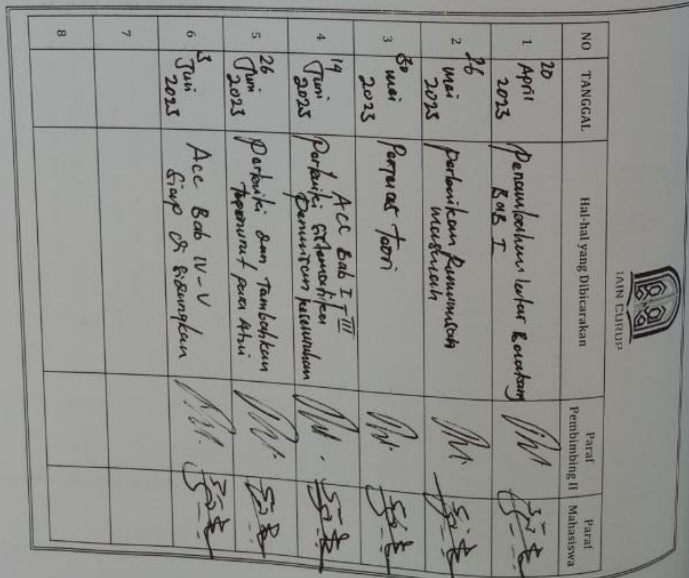 IAIN CURUP
NO TANGGAL Hal-hal yang Dibicarakan Paraf Pembimbing II Paraf Mahasiswa
1 20 April 2023 Penambahan latar Belakang
BAB I
2 26 mei 2023 perbaikan Rumusan
masalah
3 30 mei 2023 Perjelas Teori
4 19 Juni 2023 Acc Bab I III
Perbaiki Sistematika
Penulisan keseluruhan
5 26 Juni 2023 Perbaiki dan Tambahkan
para Ahli
6 3 Juli 2023 Acc Bab IV-V
Siap di sidangkan
7
8